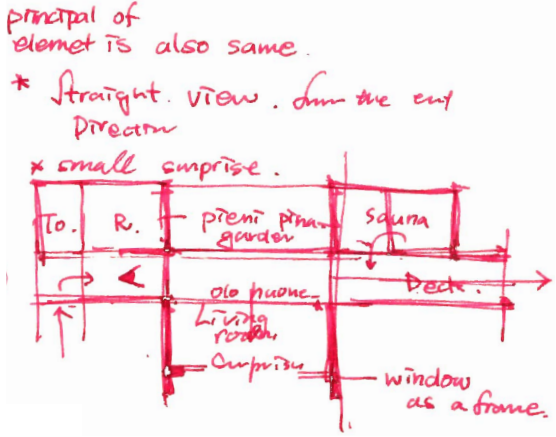 principal of
elemet is also same.
* Straight. view. from the ent
Direction
* small surprise.
To. R. pieni piha- sauna
garden
Deck.
olo huone
Living
room
Surprise
window
as a frame.